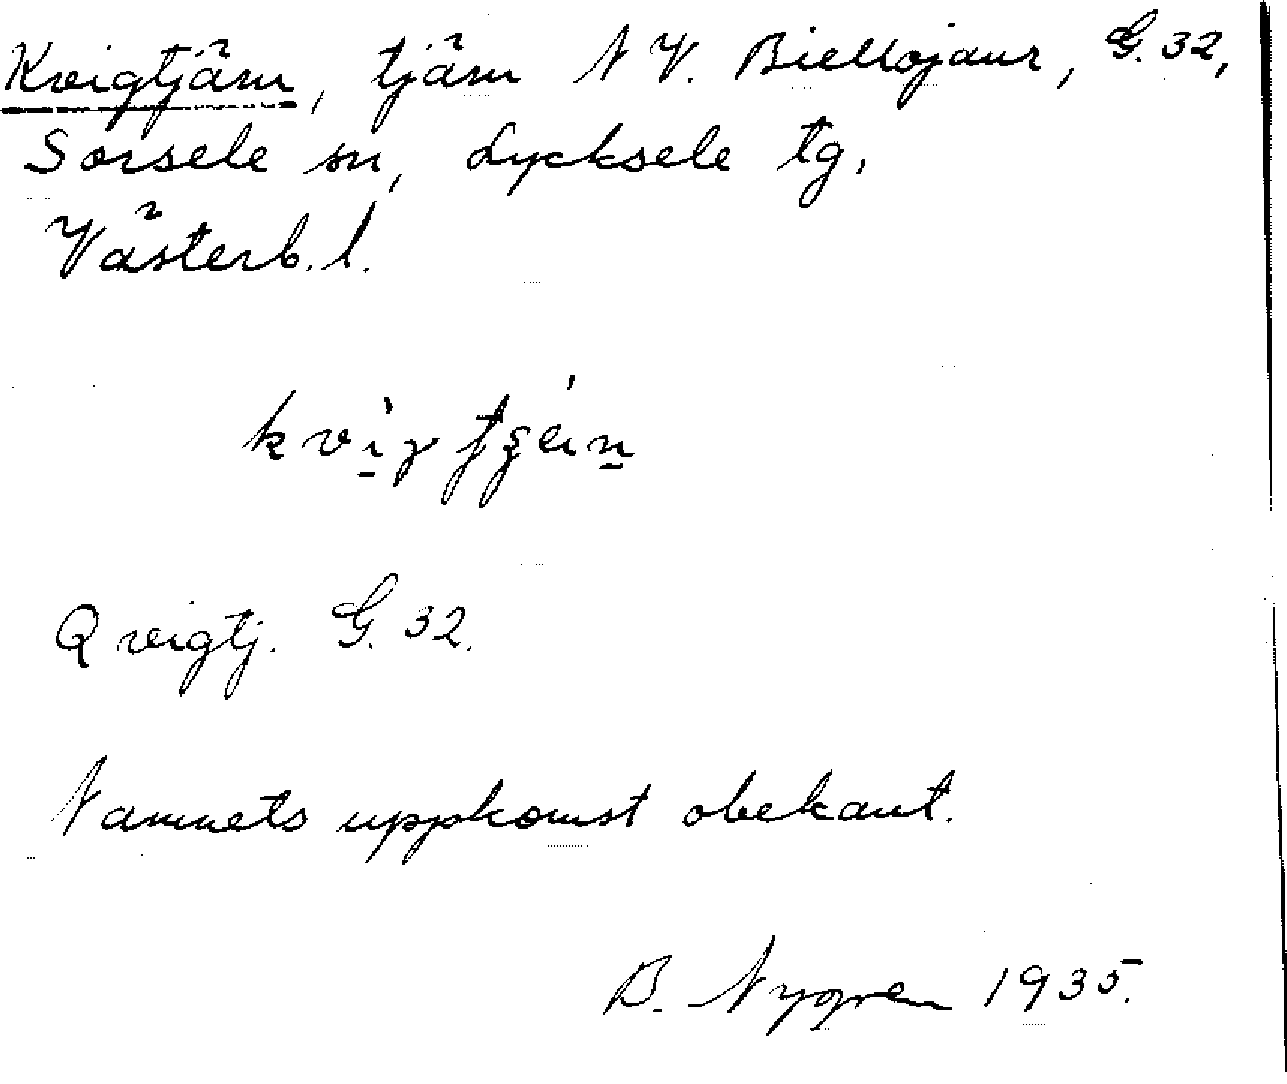 Kvigtjärn, tjärn N V. Biellojaur, G. 32,
Sorsele sn, Lycksele tg.
Västerb. l.
Qveigtj. G. 32.
Namnets uppkomst obekant.
B. Nygren 1935.